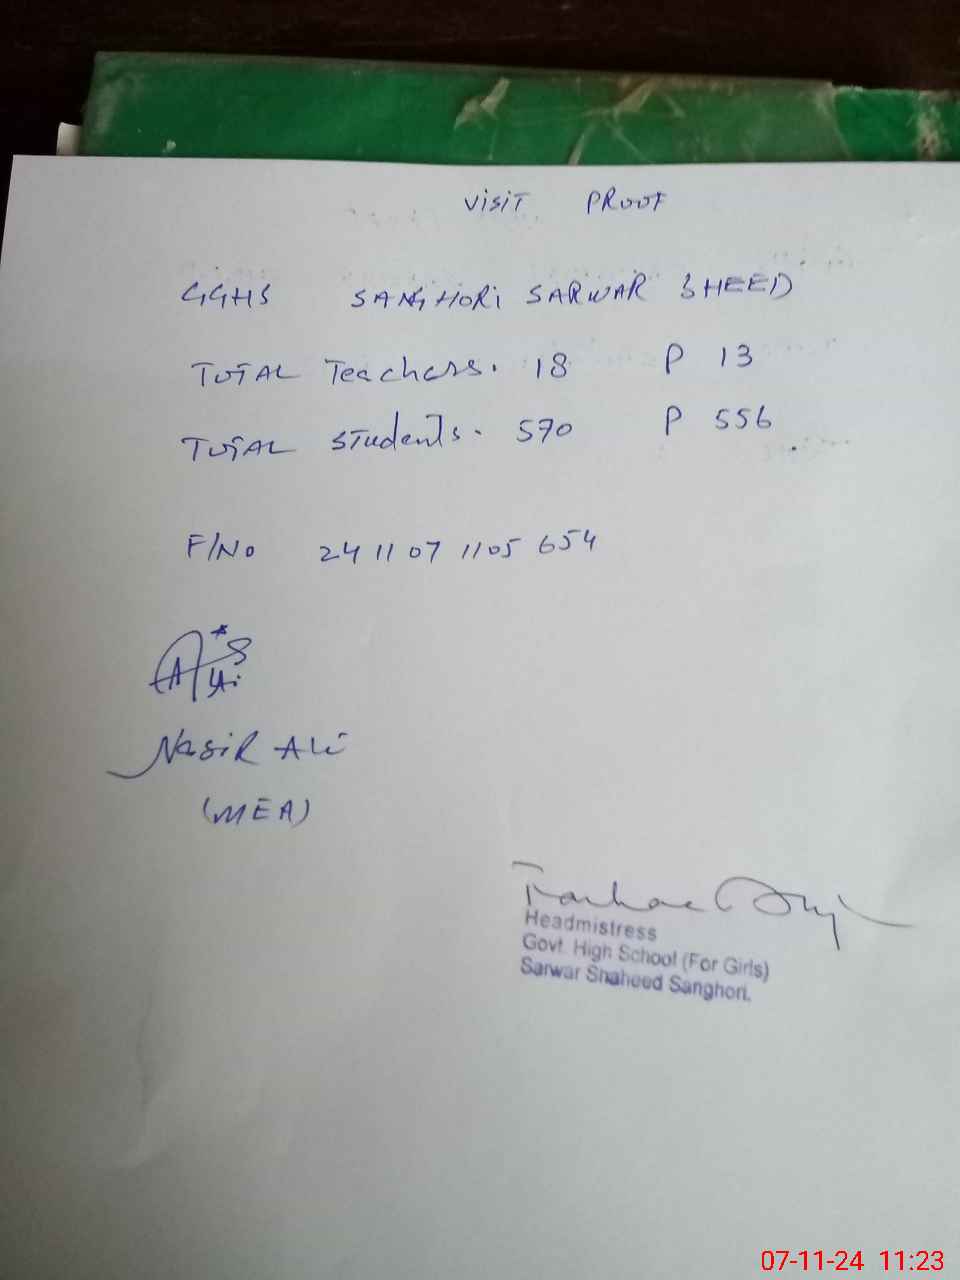 VISIT PROOF
GGHS SANGHORI SARWAR SHEED
TOTAL Teachers. 18 P 13
TOTAL Students. 570 P 556
F/No 24 11 07 1105 654
Nasir Ali
(MEA)
Headmistress
Govt. High School (For Girls)
Sarwar Shaheed Sanghori.
07-11-24 11:23